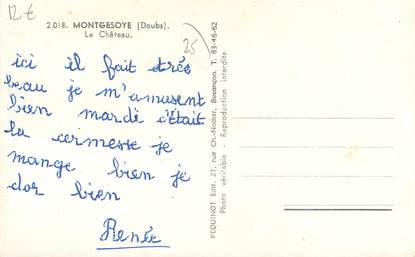 12€
2.018. MONTGESOYE (Doubs).
Le Château.
25
ici il fait très
beau je m'amusent
bien mardi c'était
la cermesse je
mange bien je
dor bien
Renée
PEQUINOT Edit, 27, rue Ch.-Nodier, Besançon. T. 83-46-62
Photo véritable - Reproduction interdite